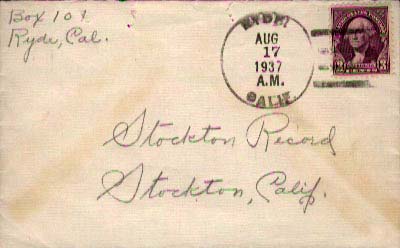 Box 101
Ryde, Cal.
RYDE
AUG
17
1937
A.M.
CALIF.
3 3
Stockton Record
Stockton, Calif.